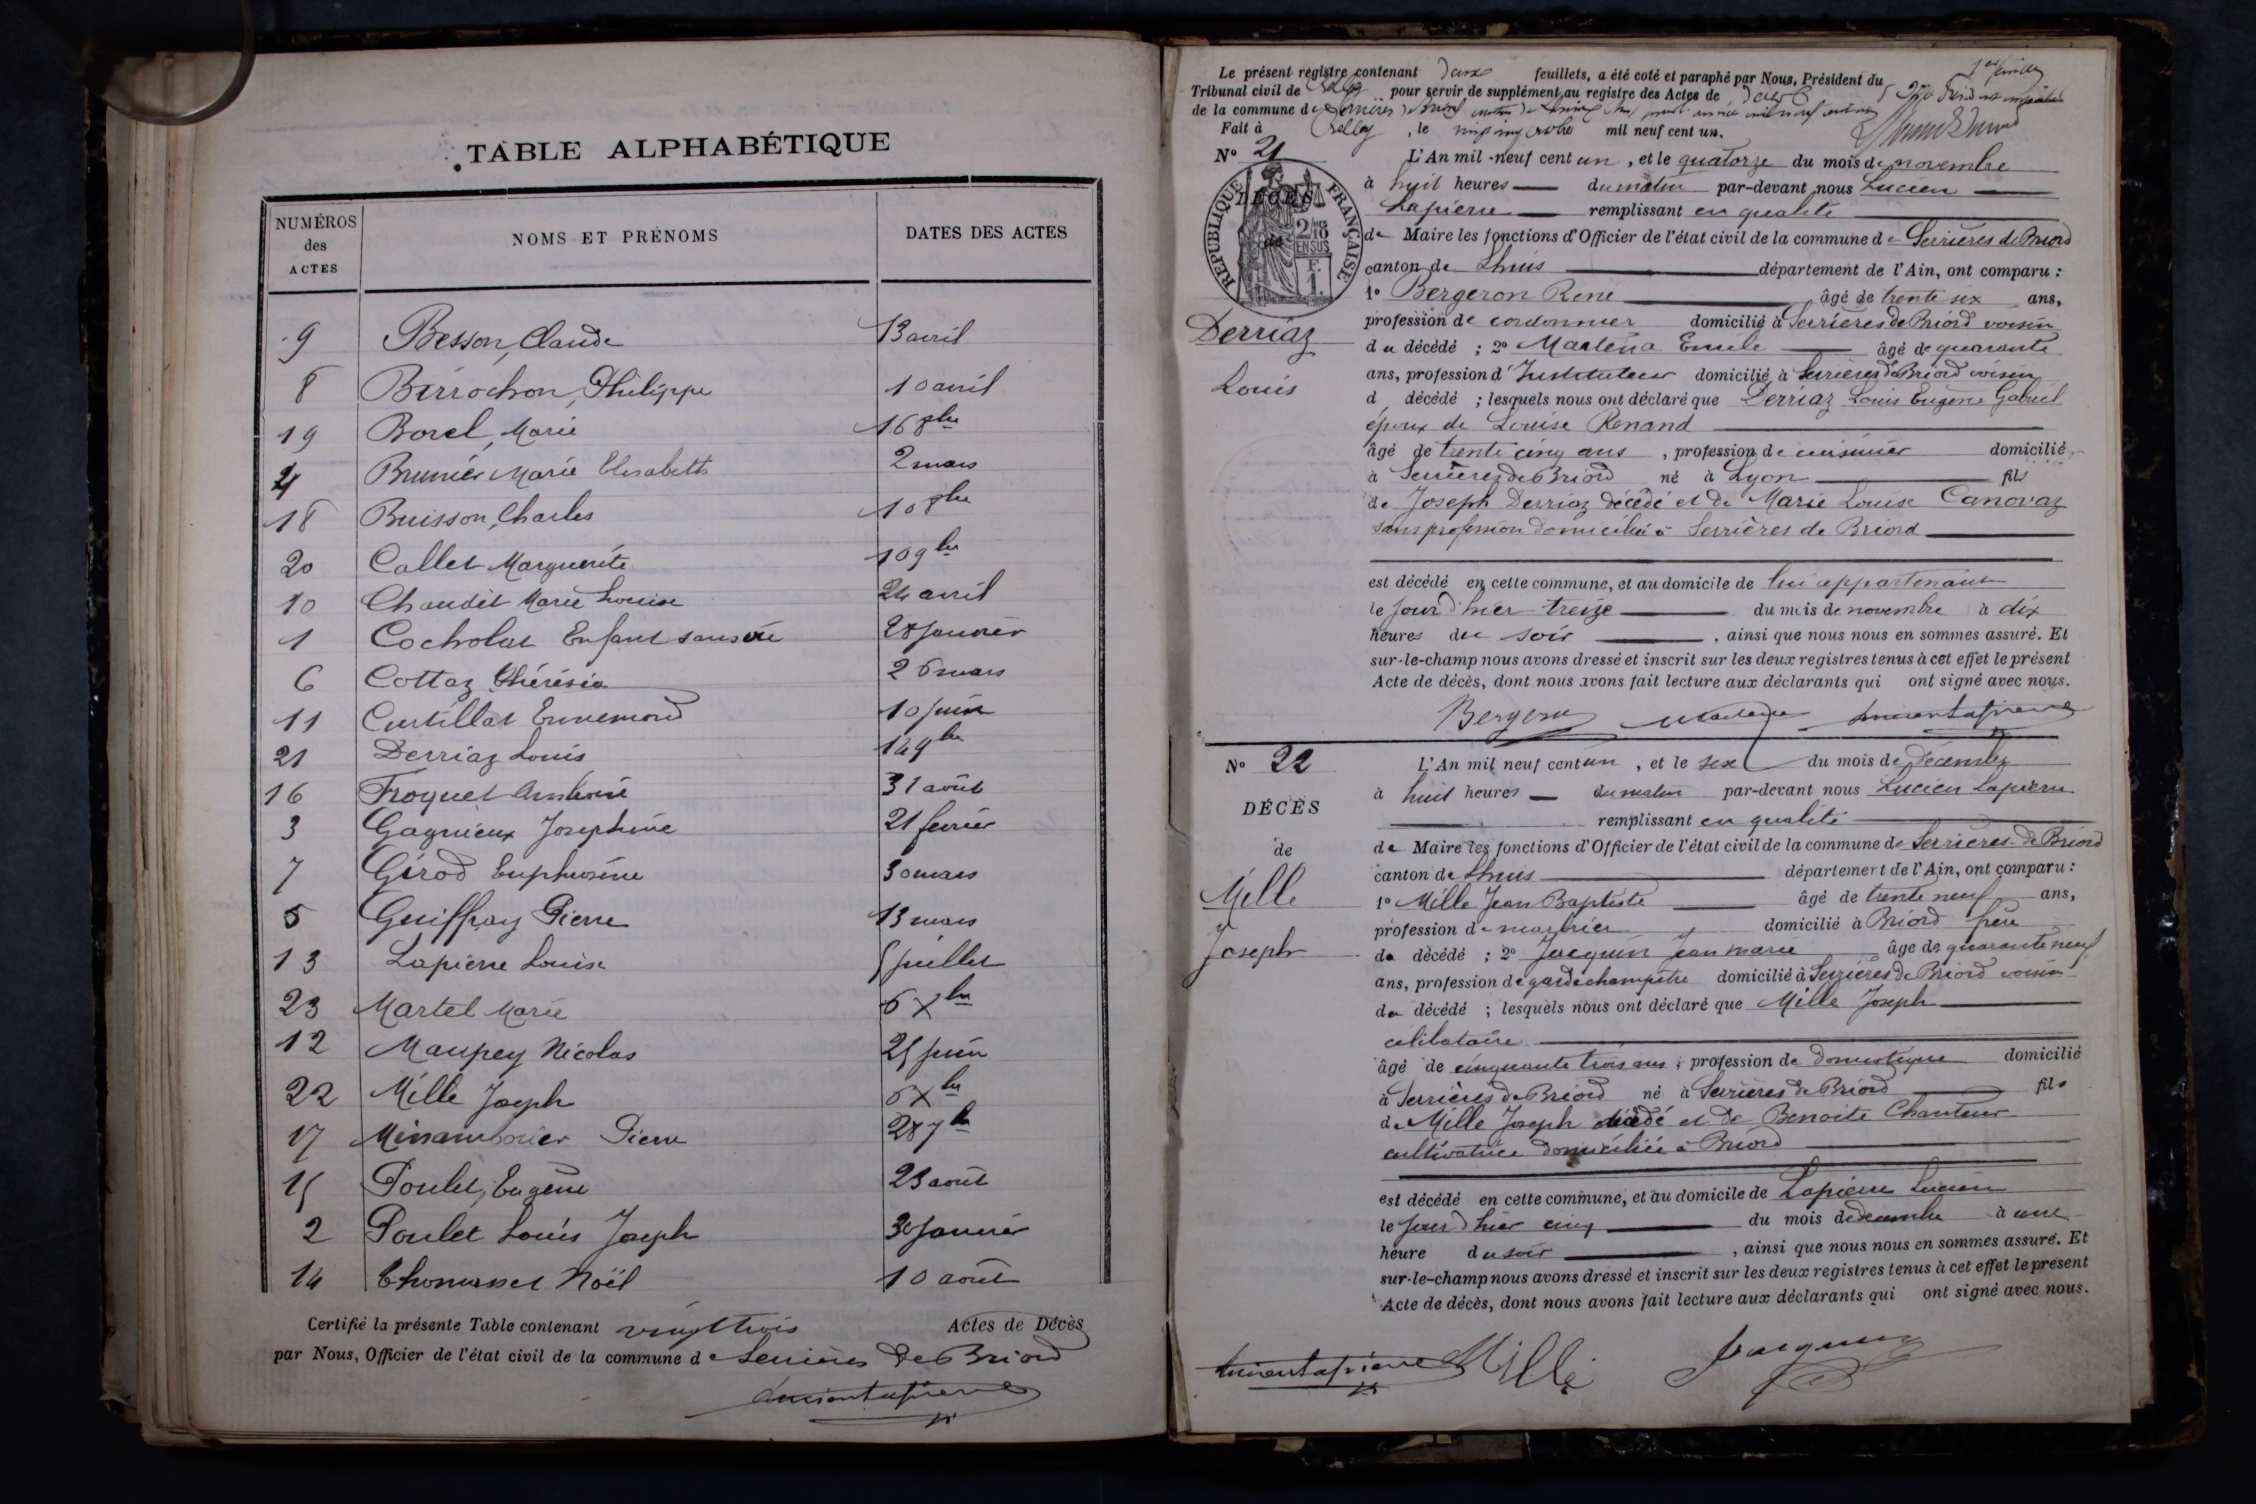 TABLE ALPHABÉTIQUE
NUMÉROS des ACTES NOMS ET PRÉNOMS DATES DES ACTES
9 Besson, Claude 13 avril
8 Birrochon, Philippe 10 avril
19 Borel, Marie 16 8bre
4 Brunier Marie Elisabeth 2 mars
18 Buisson, Charles 10 8bre
20 Callet Marguerite 10 9bre
10 Chaudet Marie Louise 24 avril
1 Cocholat Enfant sans vie 28 Janvier
6 Cottaz Thérésia 26 mars
11 Curtillat Ennemond 10 juin
21 Derriaz Louis 14 9bre
16 Froquet 31 août
3 Gagnieux Joséphine 21 février
7 Girod Euphrosine 30 mars
5 Guiffray Pierre 13 mars
13 Lapierre Louise 5 juillet
23 Martel Marie 6 Xbre
12 Maupey Nicolas 25 juin
22 Mille Joseph 6 Xbre
17 Pierre 28 7bre
15 Poulet, Eugène 23 août
2 Poulet Louis Joseph 30 Janvier
14 Thomasset Noël 10 août
Certifié la présente Table contenant vingt trois Actes de Décès
par Nous, Officier de l'état civil de la commune de Serrières de Briord
Le présent registre contenant deux feuillets, a été coté et paraphé par Nous, Président du
Tribunal civil de Belley pour servir de supplément au registre des Actes de décès
de la commune de Serrières de Briord
Fait à Belley, le mil neuf cent un.
No 21
L'An mil neuf cent un, et le quatorze du mois de novembre
RÉPUBLIQUE FRANÇAISE
DÉCÈS
2/10 EN SUS
F. 1.
à huit heures du matin par-devant nous Lucien
Lapierre remplissant en qualité
de Maire les fonctions d'Officier de l'état civil de la commune de Serrières de Briord
canton de Lhuis département de l'Ain, ont comparu :
1o Bergeron René âgé de trente six ans,
Derriaz
Louis
profession de cordonnier domicilié à Serrières de Briord voisin
du décédé ; 2o Emile âgé de quarante
ans, profession d'Instituteur domicilié à Serrières de Briord voisin
d décédé ; lesquels nous ont déclaré que Derriaz Louis Eugène Gabriel
époux de Louise Renand
âgé de trente cinq ans, profession de cuisinier domicilié
à Serrières de Briord né à Lyon fils
de Joseph Derriaz décédé et de Marie Louise Canovaz
sans profession domiciliée à Serrières de Briord
est décédé en cette commune, et au domicile de lui appartenant
le jour d'hier treize du mois de novembre à dix
heures du soir, ainsi que nous nous en sommes assuré. Et
sur-le-champ nous avons dressé et inscrit sur les deux registres tenus à cet effet le présent
Acte de décès, dont nous avons fait lecture aux déclarants qui ont signé avec nous.
Bergeron
No 22
L'An mil neuf cent un, et le six du mois de Décembre
DÉCÈS
de
Mille
Joseph
à huit heures du matin par-devant nous Lucien Lapierre
remplissant en qualité
de Maire les fonctions d'Officier de l'état civil de la commune de Serrières de Briord
canton de Lhuis département de l'Ain, ont comparu :
1o Mille Jean Baptiste âgé de trente neuf ans,
profession de marinier domicilié à Briord frère
du décédé ; 2o Jacquin Jean marie âgé de quarante neuf
ans, profession de garde champêtre domicilié à Serrières de Briord voisin
du décédé ; lesquels nous ont déclaré que Mille Joseph
célibataire
âgé de cinquante trois ans, profession de domestique domicilié
à Serrières de Briord né à Serrières de Briord fils
de Mille Joseph décédé et de Benoite Chanteur
cultivatrice domiciliée à Briord
est décédé en cette commune, et au domicile de Lapierre Lucien
le jour d'hier cinq du mois de décembre à une
heure du soir, ainsi que nous nous en sommes assuré. Et
sur-le-champ nous avons dressé et inscrit sur les deux registres tenus à cet effet le présent
Acte de décès, dont nous avons fait lecture aux déclarants qui ont signé avec nous.
Mille Jacquin